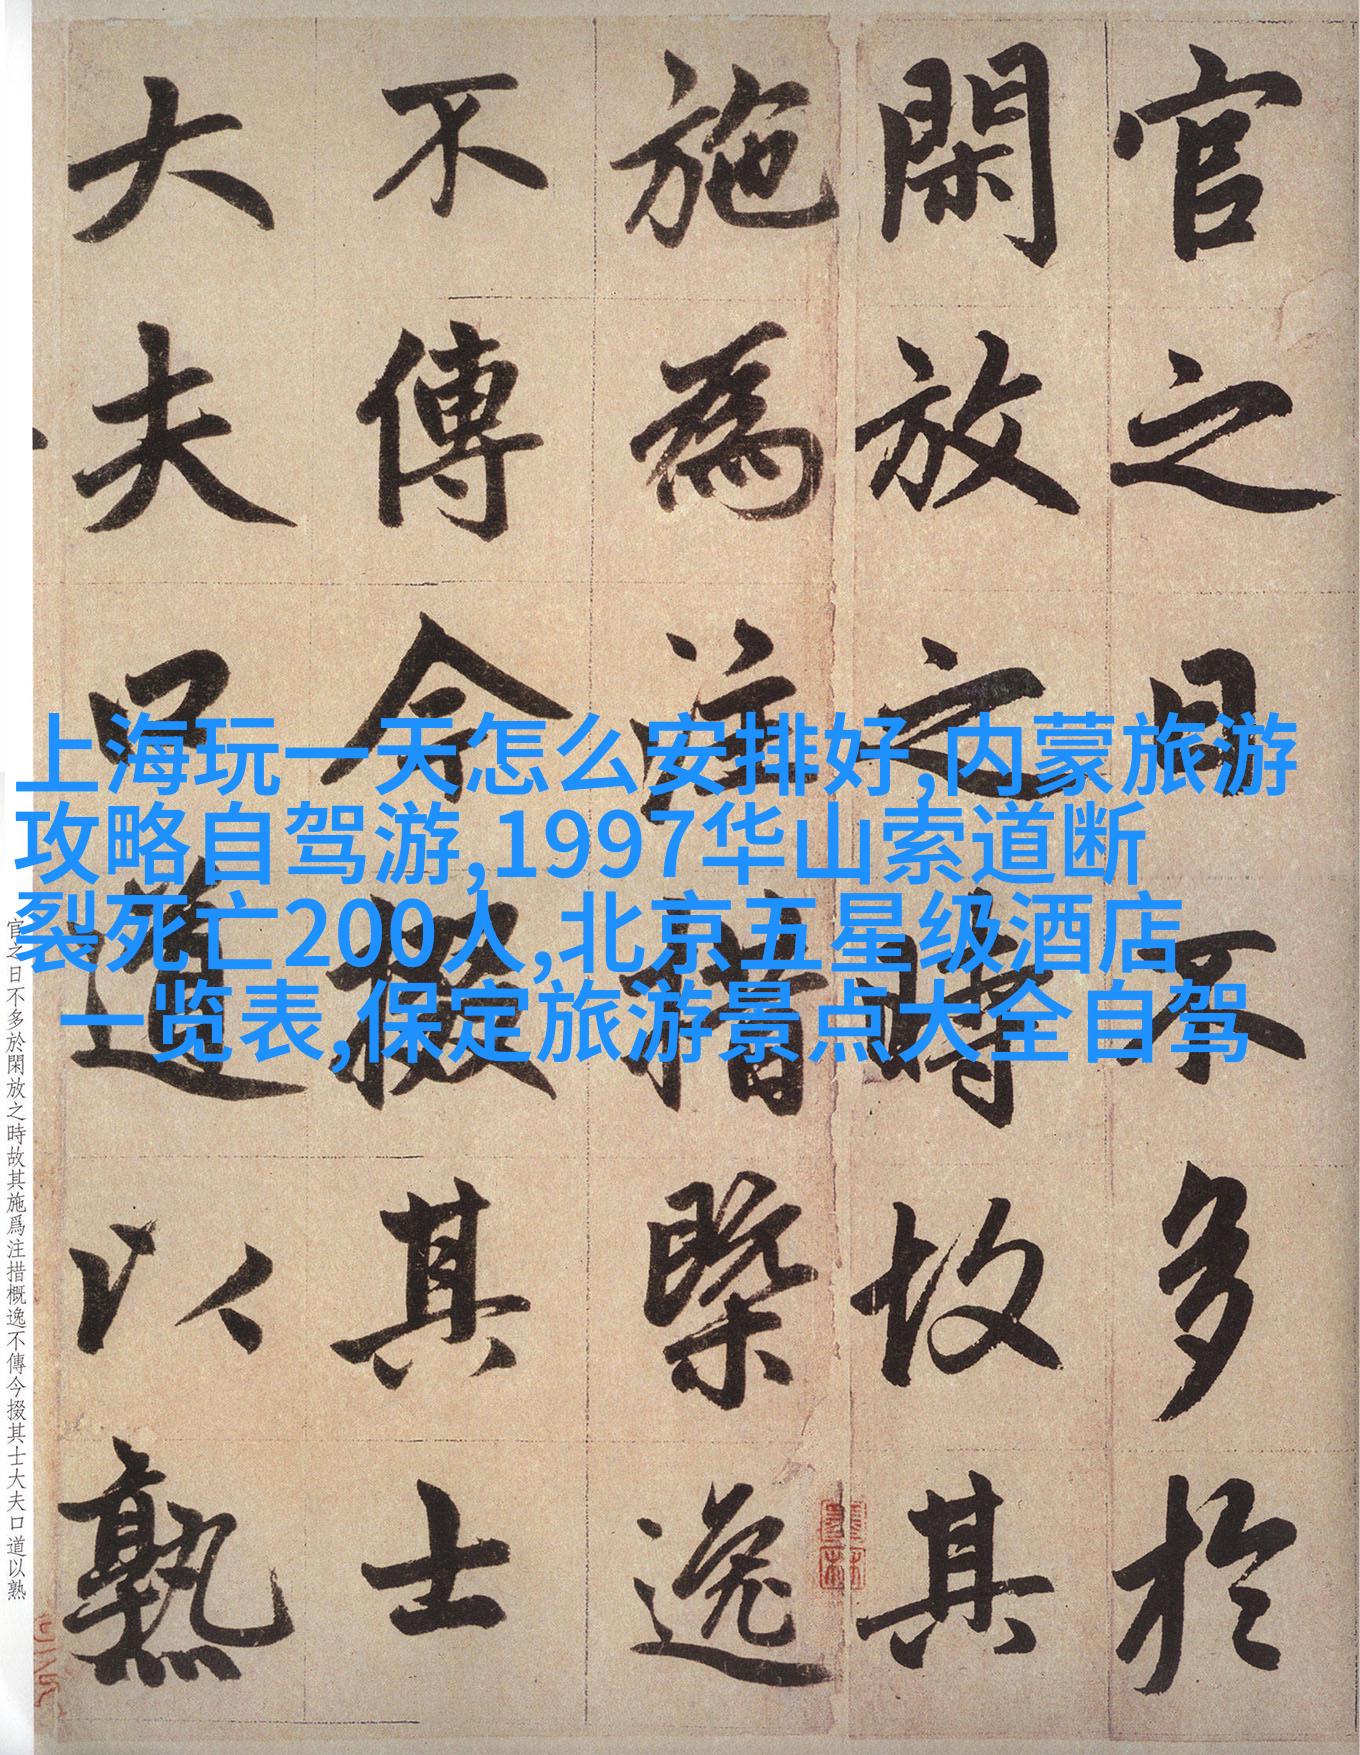 官之日不多於
閑放之時故其
施為注措槩逸
不傳今掇其士
大夫口道以熟
上海玩一天怎么安排好,内蒙旅游
攻略自驾游,1997华山索道断
裂死亡200人,北京五星级酒店
一览表,保定旅游景点大全自驾
官之日不多於閑放之時故其施爲注措概逸不傳今掇其士大夫口道以熟